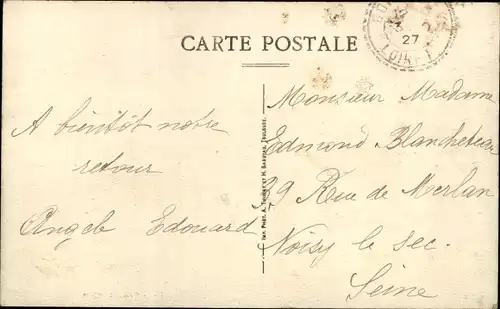 CARTE POSTALE
27
LOIRET
A bientôt notre
retour
Angèle Edouard
Monsieur Madame
Edmond Blancheteau
39 Rue de Merlan
Noisy le sec.
Seine